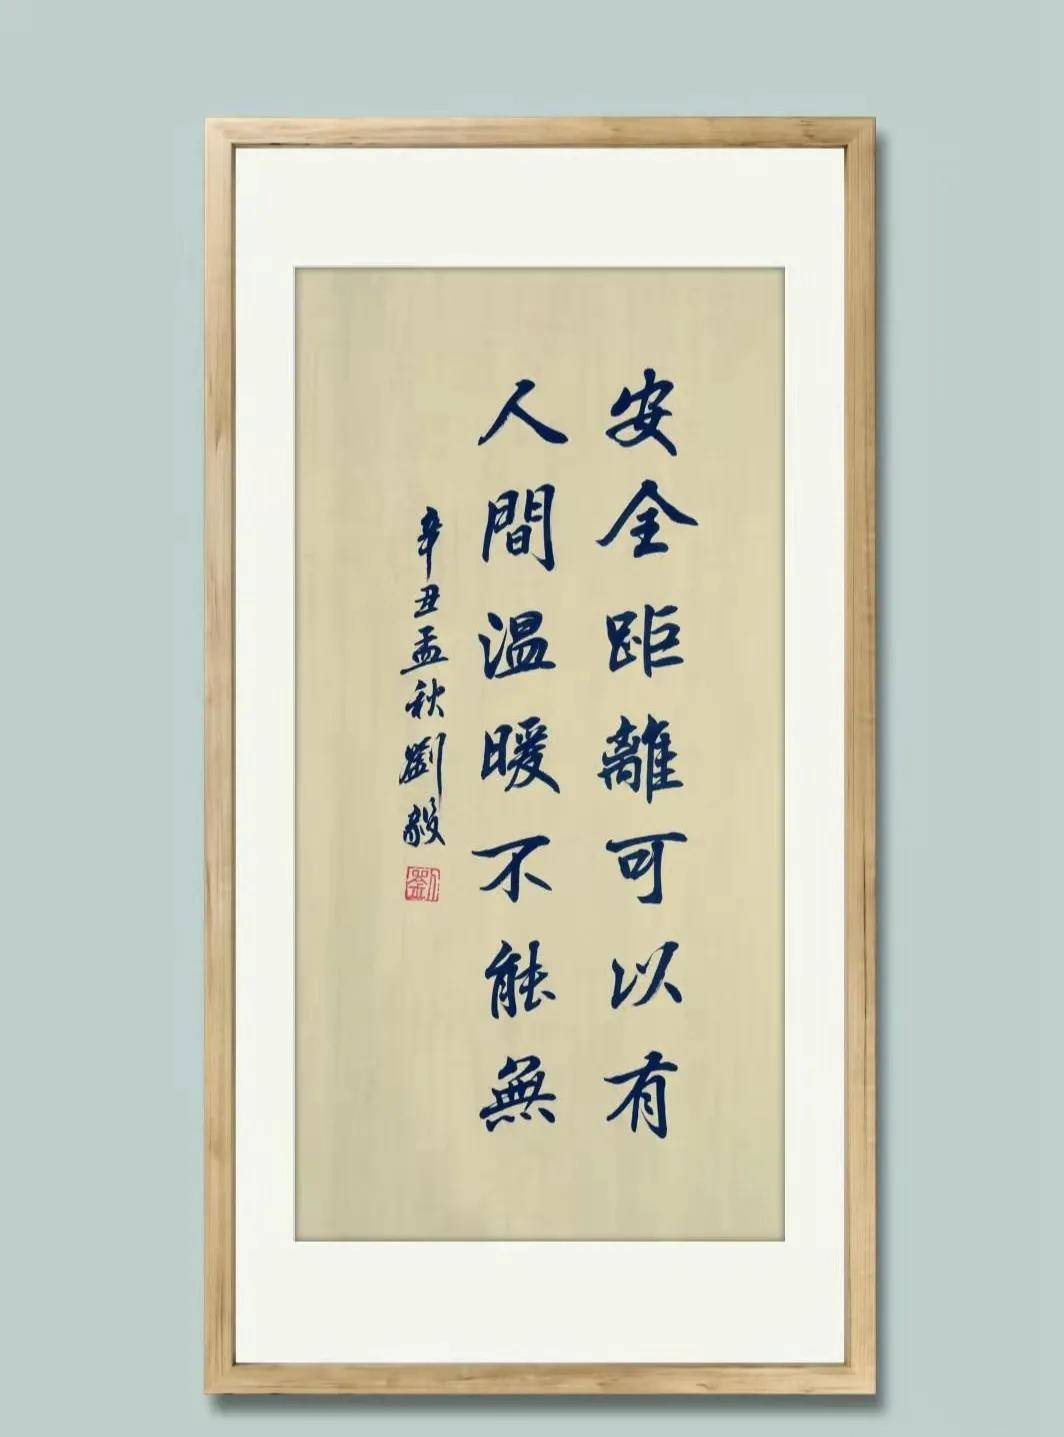 安全距離可以有
人間温暖不能無
辛丑孟秋劉毅
劉